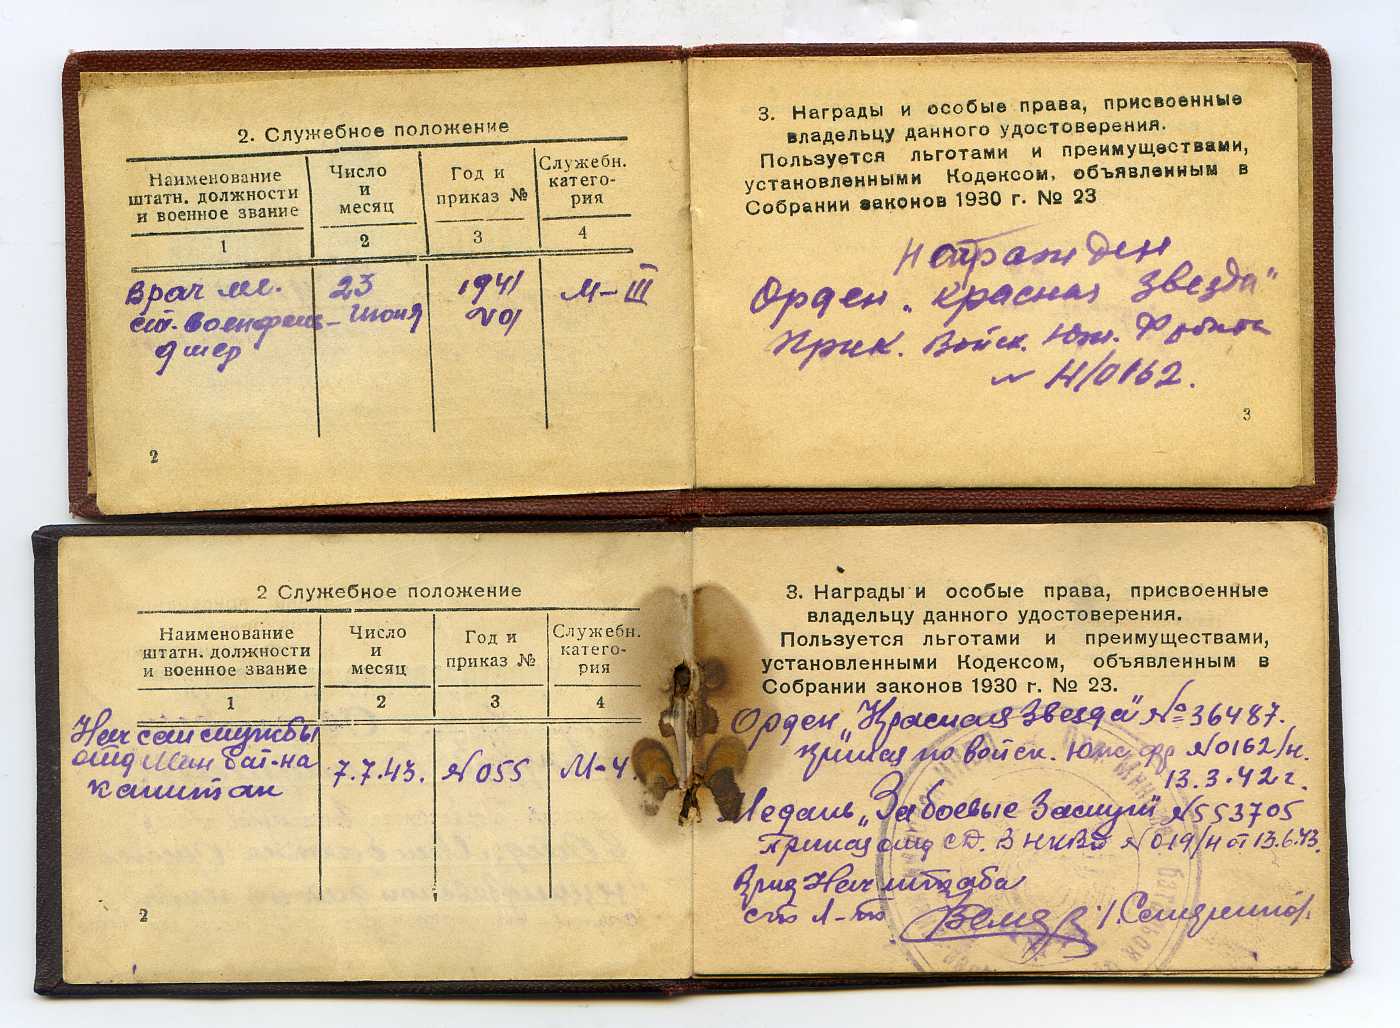 2. Служебное положение
Наименование штатн. должности и военное звание
Число и месяц
Год и приказ №
Служебн. катего-рия
1 2 3 4
Врач мл. 23 1941 М-III
ст. военфель- Июня 201
дшер
2
3. Награды и особые права, присвоенные
владельцу данного удостоверения.
Пользуется льготами и преимуществами,
установленными Кодексом, объявленным в
Собрании законов 1930 г. № 23
Награжден
Орден „Красная Звезда"
Прик. Войск. Юж. Фронта
№ Н/0162.
3
2 Служебное положение
Наименование штатн. должности и военное звание
Число и месяц
Год и приказ №
Служебн. катего-рия
1 2 3 4
Нач сан службы
отд Мин бат-на 7.7.43. №055 М-4.
капитан
2
3. Награды и особые права, присвоенные
владельцу данного удостоверения.
Пользуется льготами и преимуществами,
установленными Кодексом, объявленным в
Собрании законов 1930 г. № 23.
Орден „Красная Звезда" №36487.
приказ по войск. Юж фр №0162/н.
13.3.42 г.
Медаль „За боевые Заслуги" №553705
Приказ СД. В НКВД №019/н от 13.6.43.
Врид Нач штаба
ст Л-т